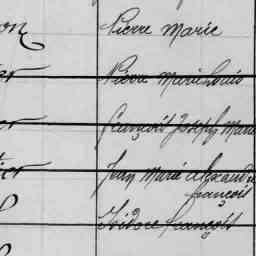 on Pierre Marie
er Pierre Marie Louis
er François Joseph Marie
tier Jean Marie Alexandre
françois
Isidore françois